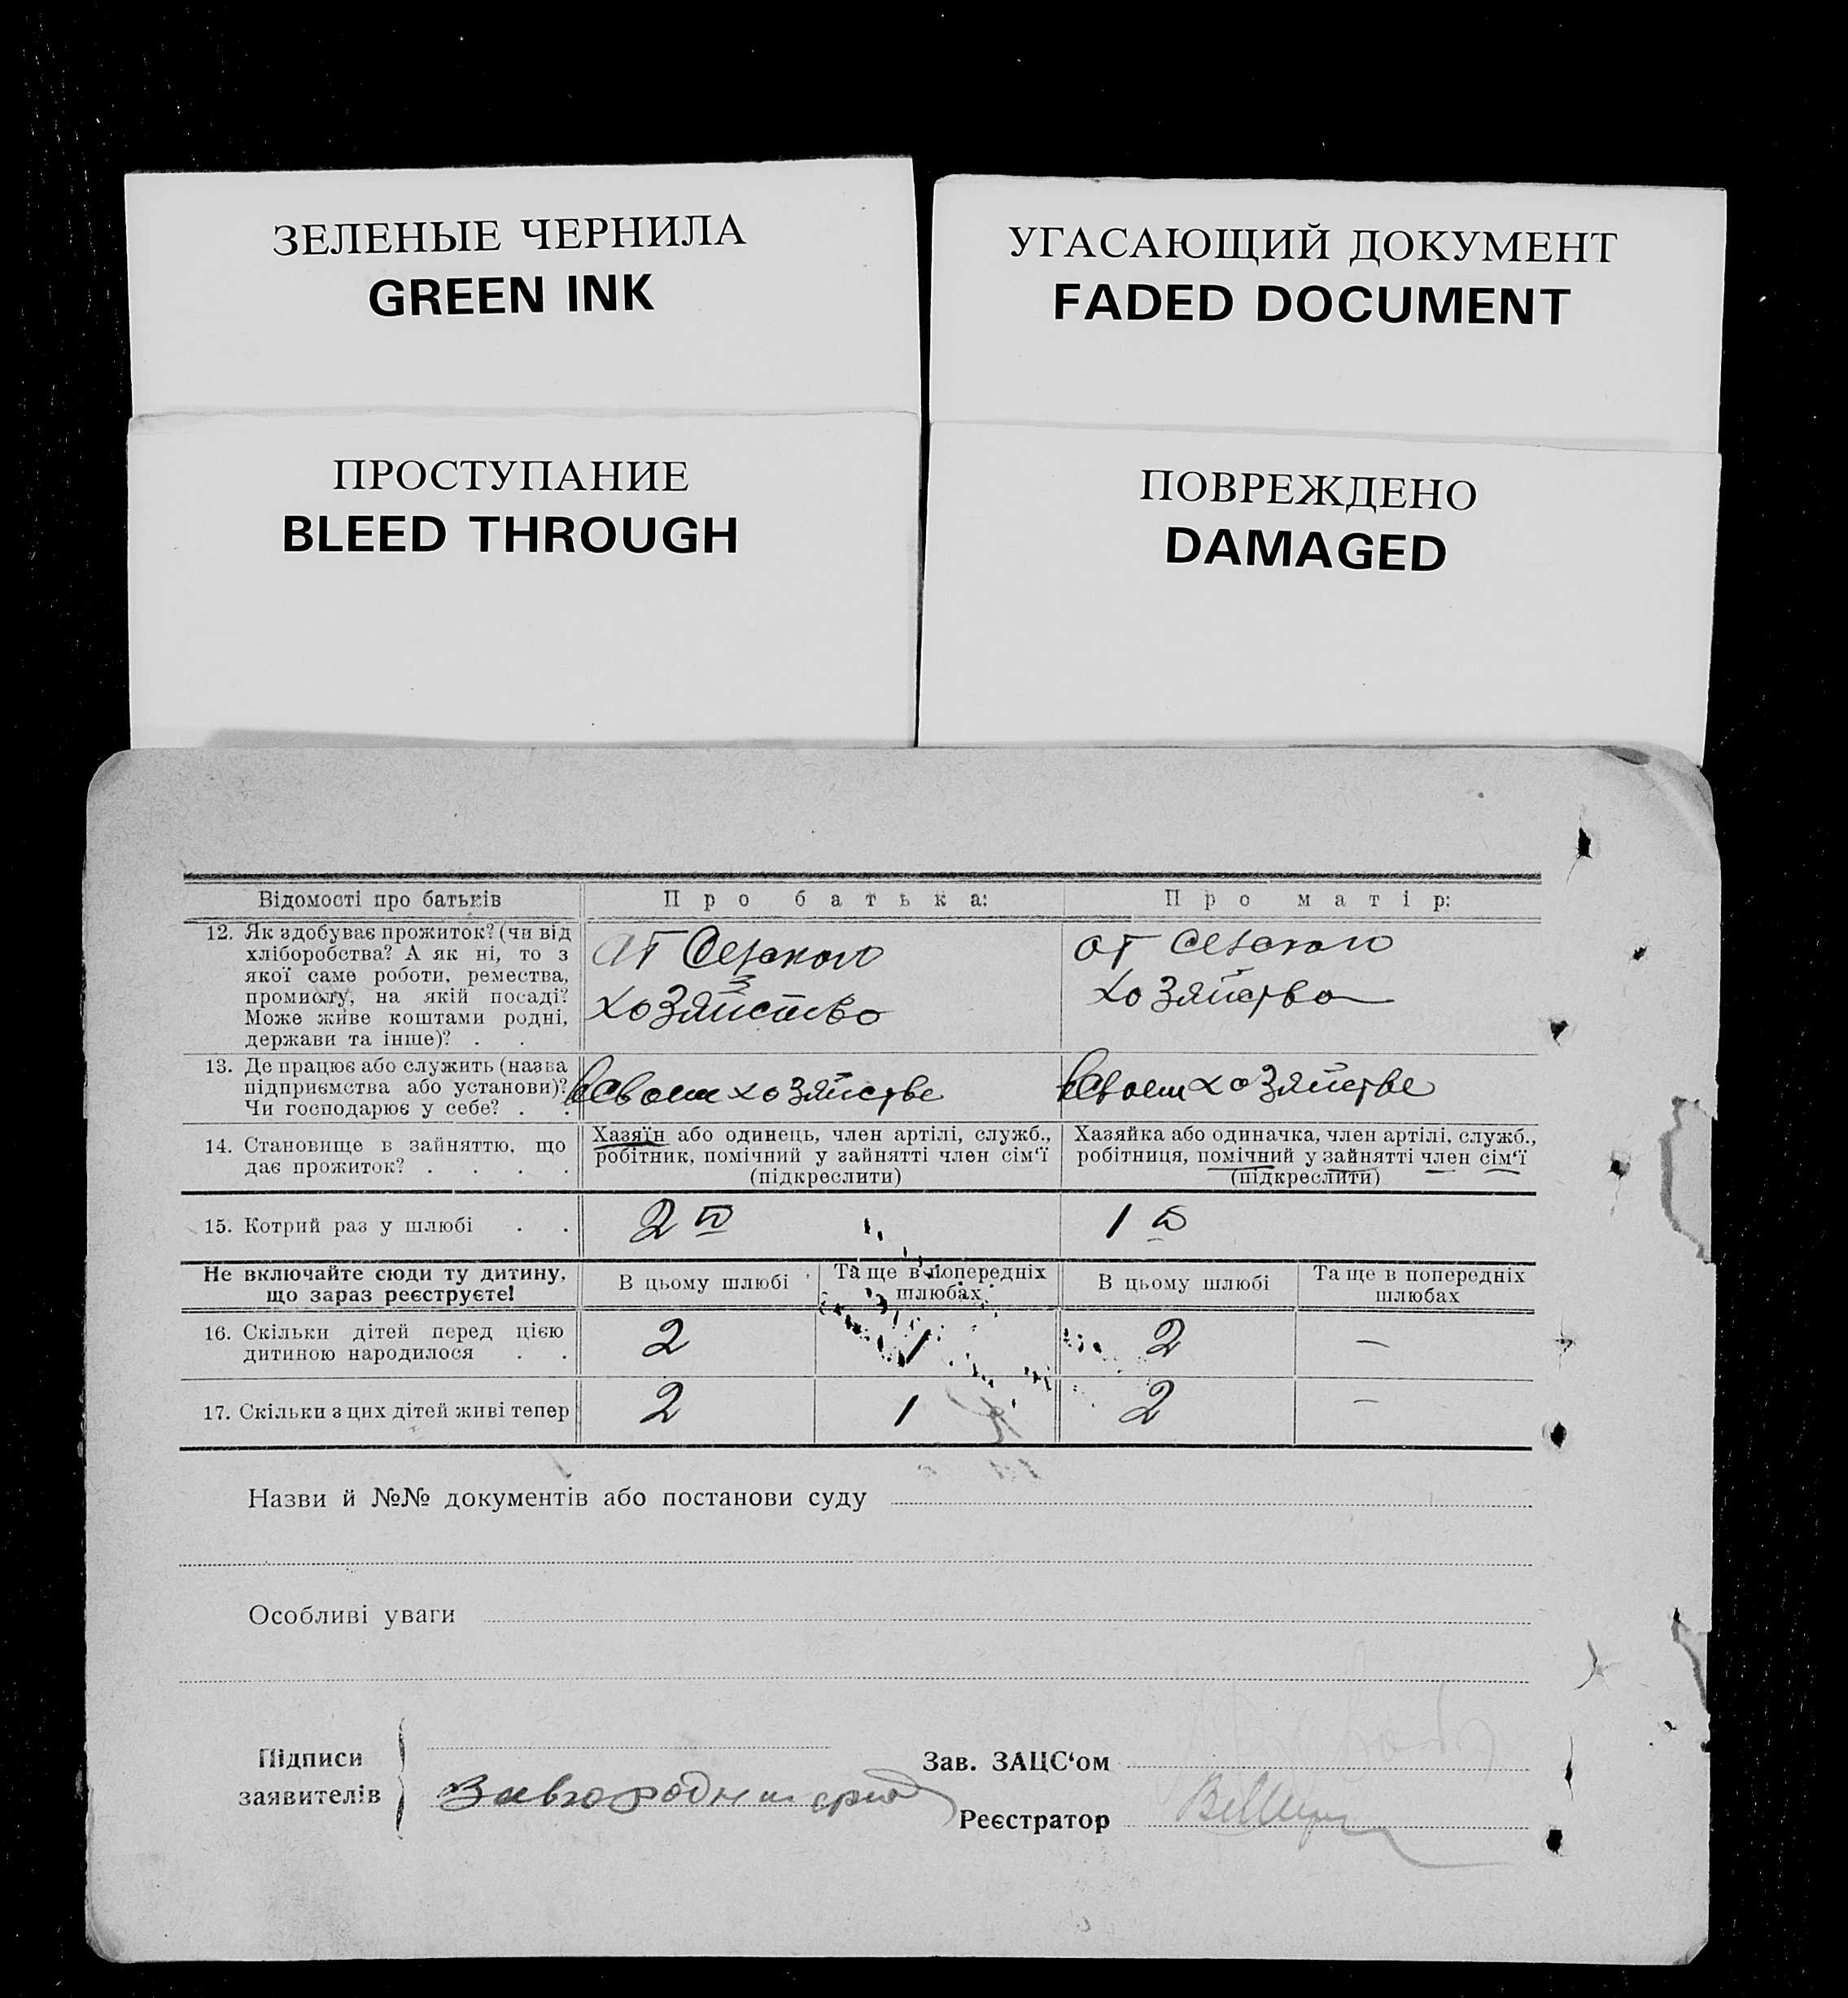 ЗЕЛЕНЫЕ ЧЕРНИЛА
GREEN INK
УГАСАЮЩИЙ ДОКУМЕНТ
FADED DOCUMENT
ПРОСТУПАНИЕ
BLEED THROUGH
ПОВРЕЖДЕНО
DAMAGED
Відомості про батьків
Про батька:
Про матір:
12. Як здобуває прожиток? (чи від
хліборобства? А як ні, то з
якої саме роботи, ремества,
промислу, на якій посаді?
Може живе коштами родні,
держави та інше)? . .
от Сельского
хозяйство
от сельского
хозяйства
13. Де працює або служить (назва
підприємства або установи)?
Чи господарює у себе? . .
в своем хозяйстве
в своем хозяйстве
14. Становище в зайняттю, що
дає прожиток? . . . .
Хазяїн або одинець, член артілі, служб.,
робітник, помічний у зайнятті член сім‘ї
(підкреслити)
Хазяйка або одиначка, член артілі, служб.,
робітниця, помічний у зайнятті член сім‘ї
(підкреслити)
15. Котрий раз у шлюбі . .
2й
1й
Не включайте сюди ту дитину,
що зараз реєструєте!
В цьому шлюбі
Та ще в попередніх
шлюбах
В цьому шлюбі
Та ще в попередніх
шлюбах
16. Скільки дітей перед цією
дитиною народилося . .
2
1
2
—
17. Скільки з цих дітей живі тепер
2
1
2
—
Назви й №№ документів або постанови суду
Особливі уваги
Підписи
заявителів
Зав. ЗАЦС‘ом
Реєстратор